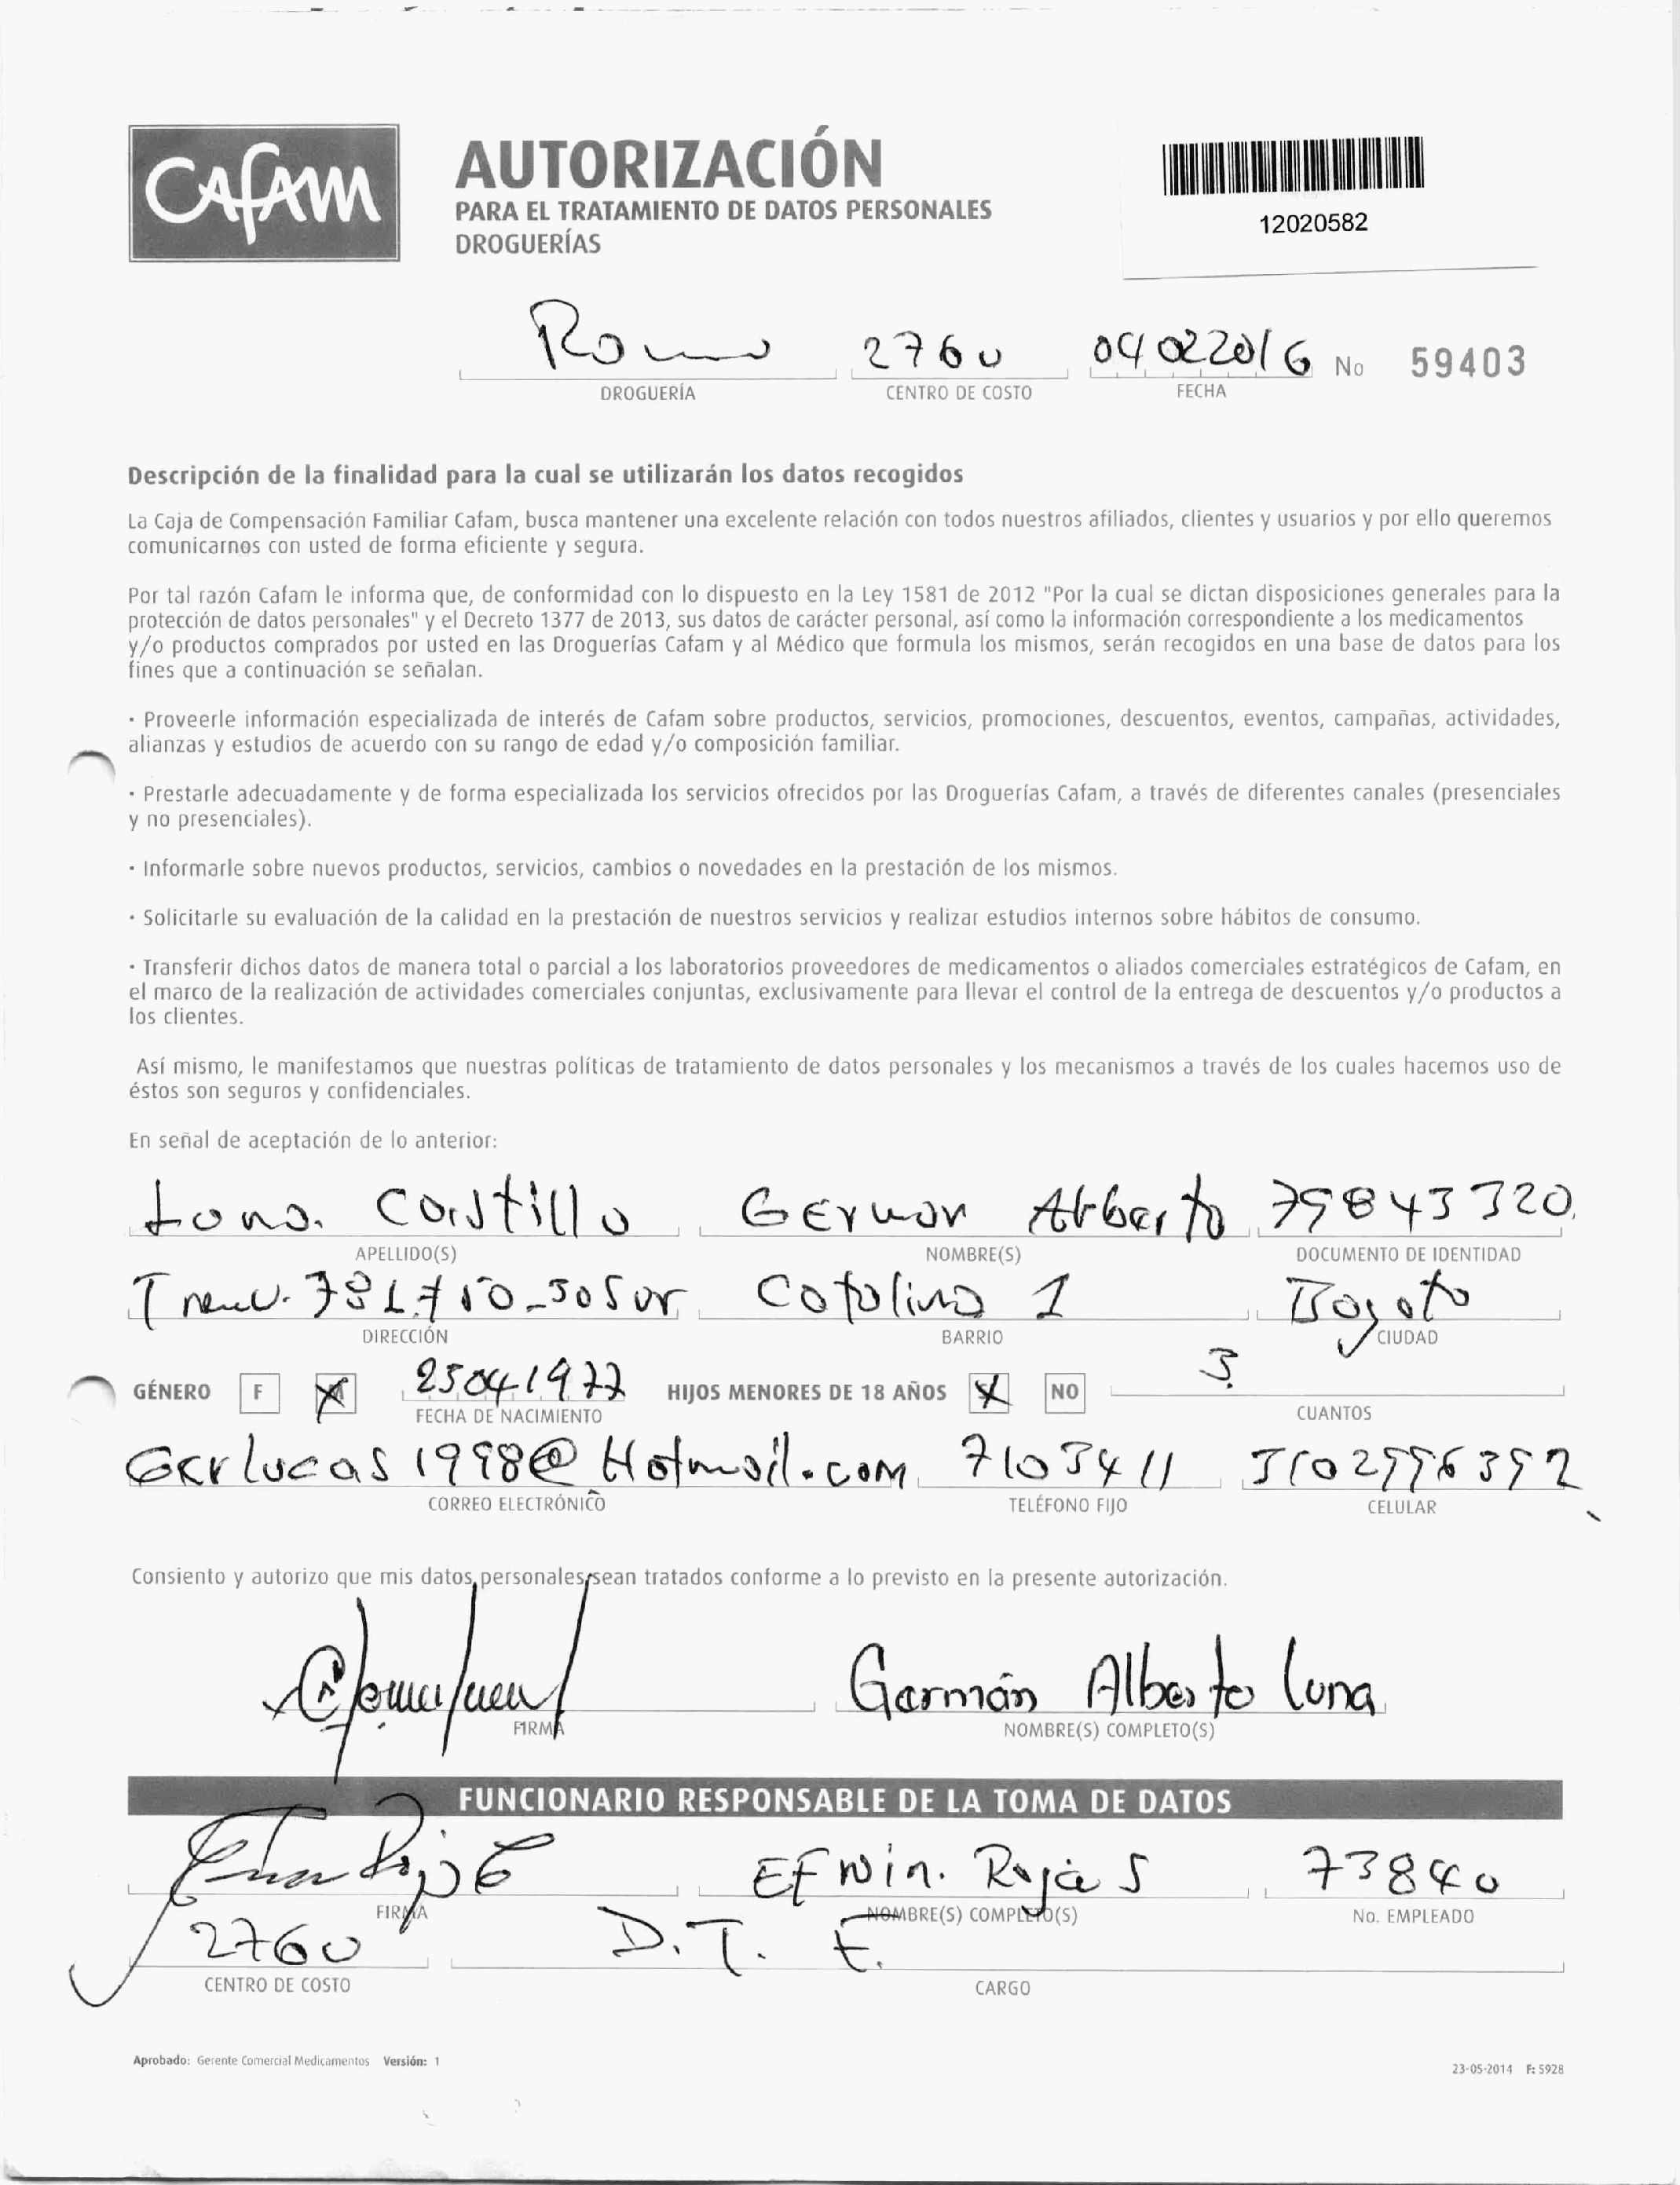 CAFAM
AUTORIZACIÓN
PARA EL TRATAMIENTO DE DATOS PERSONALES
DROGUERÍAS
12020582
Roma 2760 04022016 No 59403
DROGUERÍA CENTRO DE COSTO FECHA
Descripción de la finalidad para la cual se utilizarán los datos recogidos
La Caja de Compensación Familiar Cafam, busca mantener una excelente relación con todos nuestros afiliados, clientes y usuarios y por ello queremos
comunicarnos con usted de forma eficiente y segura.
Por tal razón Cafam le informa que, de conformidad con lo dispuesto en la Ley 1581 de 2012 "Por la cual se dictan disposiciones generales para la
protección de datos personales" y el Decreto 1377 de 2013, sus datos de carácter personal, así como la información correspondiente a los medicamentos
y/o productos comprados por usted en las Droguerías Cafam y al Médico que formula los mismos, serán recogidos en una base de datos para los
fines que a continuación se señalan.
· Proveerle información especializada de interés de Cafam sobre productos, servicios, promociones, descuentos, eventos, campañas, actividades,
alianzas y estudios de acuerdo con su rango de edad y/o composición familiar.
· Prestarle adecuadamente y de forma especializada los servicios ofrecidos por las Droguerías Cafam, a través de diferentes canales (presenciales
y no presenciales).
· Informarle sobre nuevos productos, servicios, cambios o novedades en la prestación de los mismos.
· Solicitarle su evaluación de la calidad en la prestación de nuestros servicios y realizar estudios internos sobre hábitos de consumo.
· Transferir dichos datos de manera total o parcial a los laboratorios proveedores de medicamentos o aliados comerciales estratégicos de Cafam, en
el marco de la realización de actividades comerciales conjuntas, exclusivamente para llevar el control de la entrega de descuentos y/o productos a
los clientes.
Así mismo, le manifestamos que nuestras políticas de tratamiento de datos personales y los mecanismos a través de los cuales hacemos uso de
éstos son seguros y confidenciales.
En señal de aceptación de lo anterior:
Luna. Castillo German Alberto 79843320
APELLIDO(S) NOMBRE(S) DOCUMENTO DE IDENTIDAD
50 sur Catalina 1 Bogota
DIRECCIÓN BARRIO CIUDAD
GÉNERO F 25041977 HIJOS MENORES DE 18 AÑOS NO 3
FECHA DE NACIMIENTO CUANTOS
Gerlucas1998@Hotmail.com 7103411 3102996392
CORREO ELECTRÓNICO TELÉFONO FIJO CELULAR
Consiento y autorizo que mis datos personales sean tratados conforme a lo previsto en la presente autorización.
Germán Alberto Luna
FIRMA NOMBRE(S) COMPLETO(S)
FUNCIONARIO RESPONSABLE DE LA TOMA DE DATOS
Efwin. Rojas 73840
FIRMA NOMBRE(S) COMPLETO(S) No. EMPLEADO
2760 D.T. F.
CENTRO DE COSTO CARGO
Aprobado: Gerente Comercial Medicamentos Versión: 1
23-05-2014 F: 5928